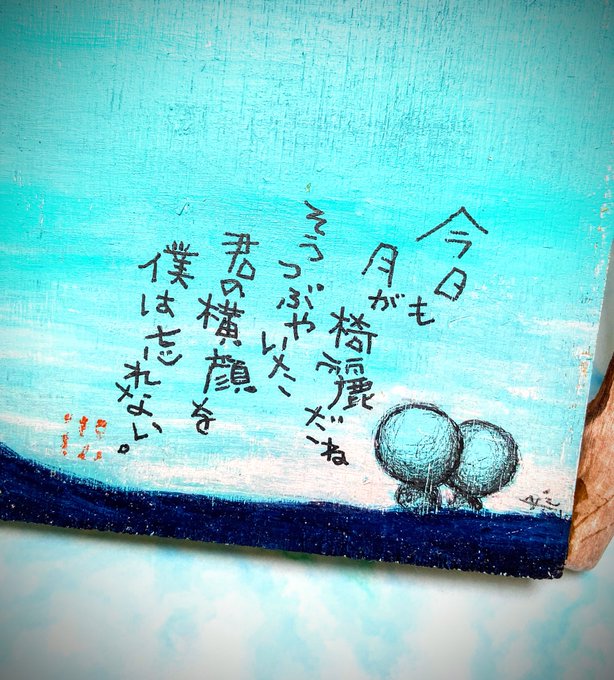 今日も
月が
椅麗だね
そうつぶやいた
君の横顔を
僕は忘れない。